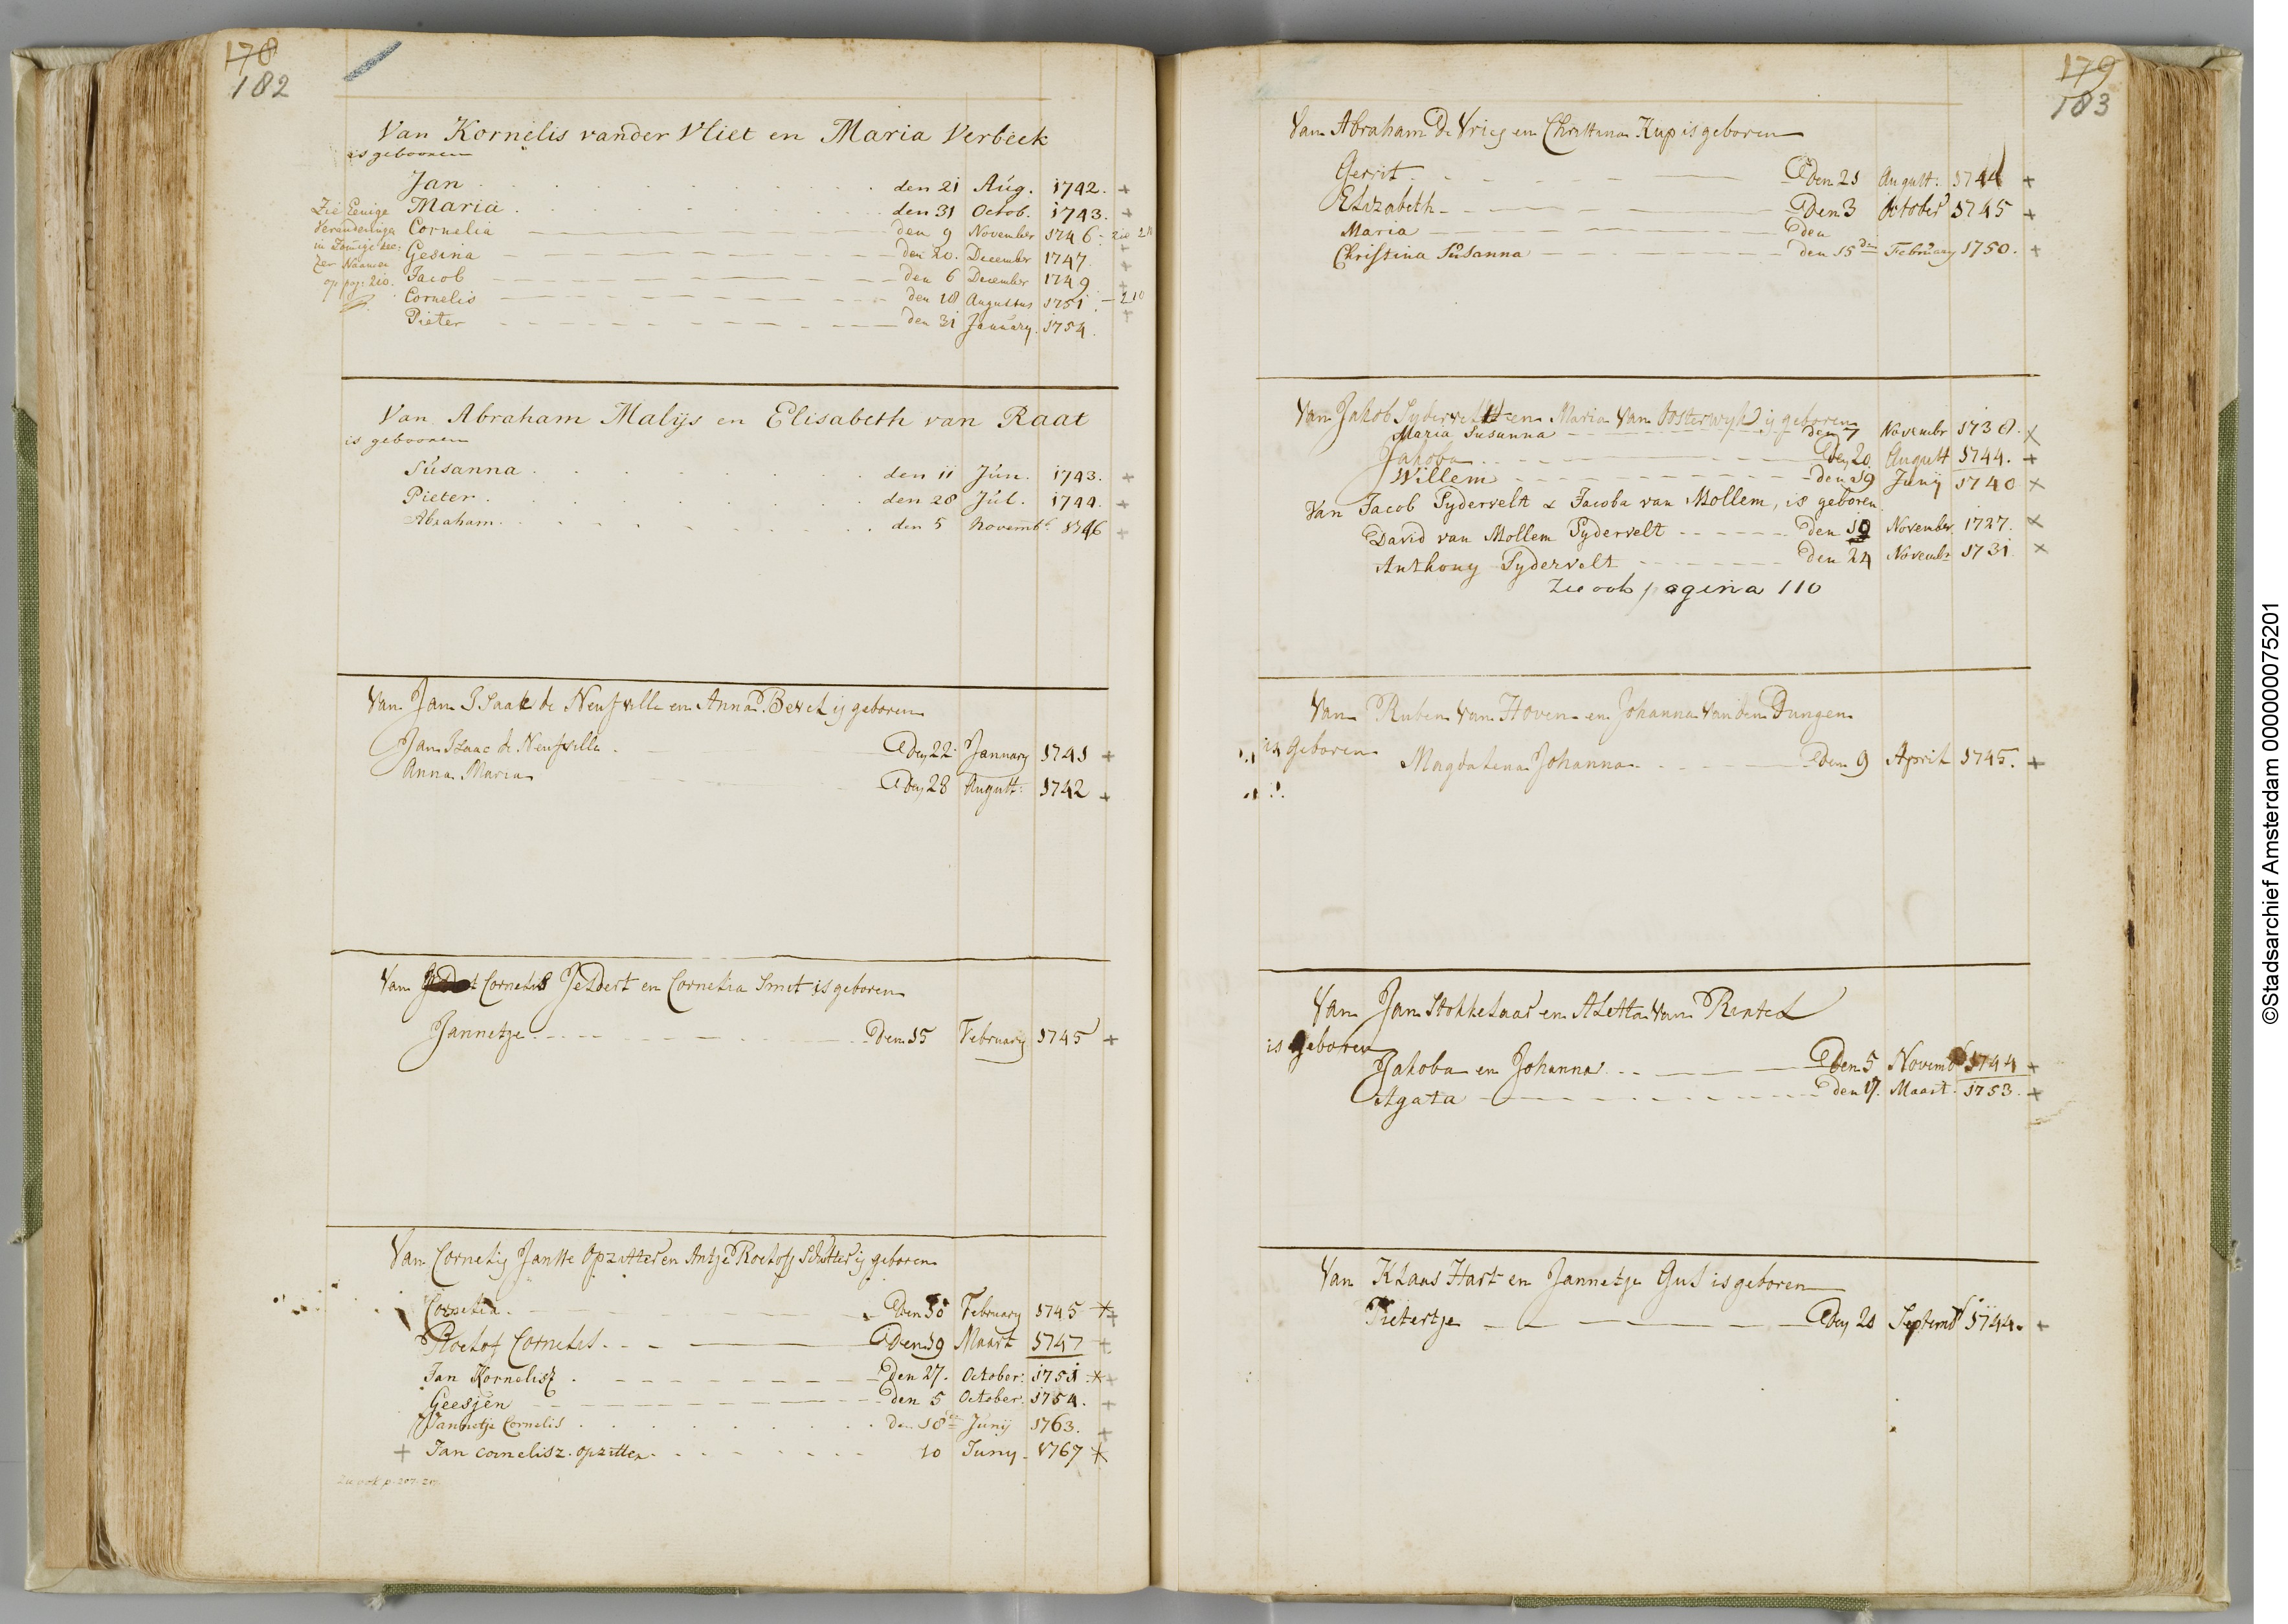 178
182
Van Kornelis vander Vliet en Maria Verbeek
is gebooren
Jan den 21 Aug. 1742. +
Maria den 31 Octob. 1743. +
Cornelia den 9 November 1746 - 210
Gesina den 20. December 1747 +
Jacob den 6 December 1749 +
Cornelis den 18 Augustus 1751 - 210
Pieter den 31 January. 1754. +
Zie Eenige
Veranderinge
in Zommige dee:
zer Naamen
op pag: 210.
Van Abraham Malijs en Elisabeth van Raat
is gebooren
Susanna den 11 Jun. 1743. +
Pieter den 28 Jul. 1744. +
Abraham den 5 Novembr 1746 +
Van Jan Isaak de Neufville en Anna Bevel is geboren
Jan Isaac de Neufville den 22 January 1741 +
Anna Maria den 28 August: 1742 +
Van Cornelis Jeldert en Cornelia Smit is geboren
Jannetje den 15 February 1745 +
Van Cornelis Janse Opzitter en Antje Roelofs Schutter is geboren
Cornelia den 10 February 1745 +
Roelof Cornelis den 19 Maart 1747 +
Jan Kornelisz den 27. October: 1751 +
Geesjen den 5 October. 1754. +
Jannetje Cornelis den 18en Junij 1763. +
+ Jan cornelisz. opzitter 10 Juny 1767 +
Zie ook p. 207
179
183
Van Abraham De Vries en Christina Kup is geboren
Gerrit den 21 August: 1744 +
Elizabeth den 3 October 1745 +
Maria den
Christina Susanna den 15den February 1750. +
Van Jakob Sydervelt en Maria Van Oosterwyk is geboren
Maria Susanna den 7 Novembr 1738. ×
Jakoba den 20 August 1744. +
Willem den 19 Junij 1740 ×
Van Jacob Sydervelt & Jacoba van Mollem, is geboren
David van Mollem Sydervelt den 10 November 1727. ×
Anthony Sydervelt den 24 Novembr 1731 ×
Zie ook pagina 110
Van Ruben Van Hoven en Johanna Van den Dungen
is geboren
Magdalena Johanna den 9 April 1745. +
Van Jan Stokkelaar en Aletta Van Rentel
is geboren
Jakoba en Johanna den 5 Novembr 1744 +
Agata den 17. Maart 1753. +
Van Klaas Hart en Jannetje Gul is geboren
Pietertje den 20 Septembr 1744. +
©Stadsarchief Amsterdam 000000075201